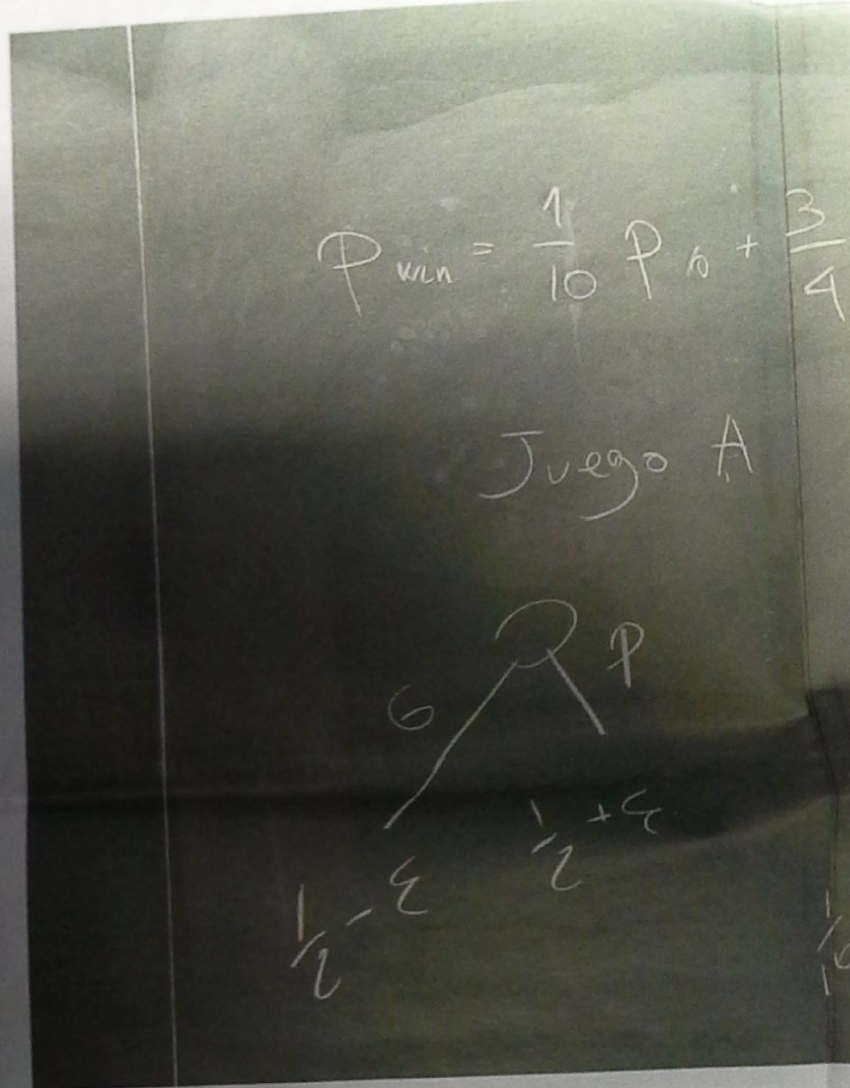 P win = 1/10 P₀ + 3/4
Juego A
G P
1/2 - ε 1/2 + ε